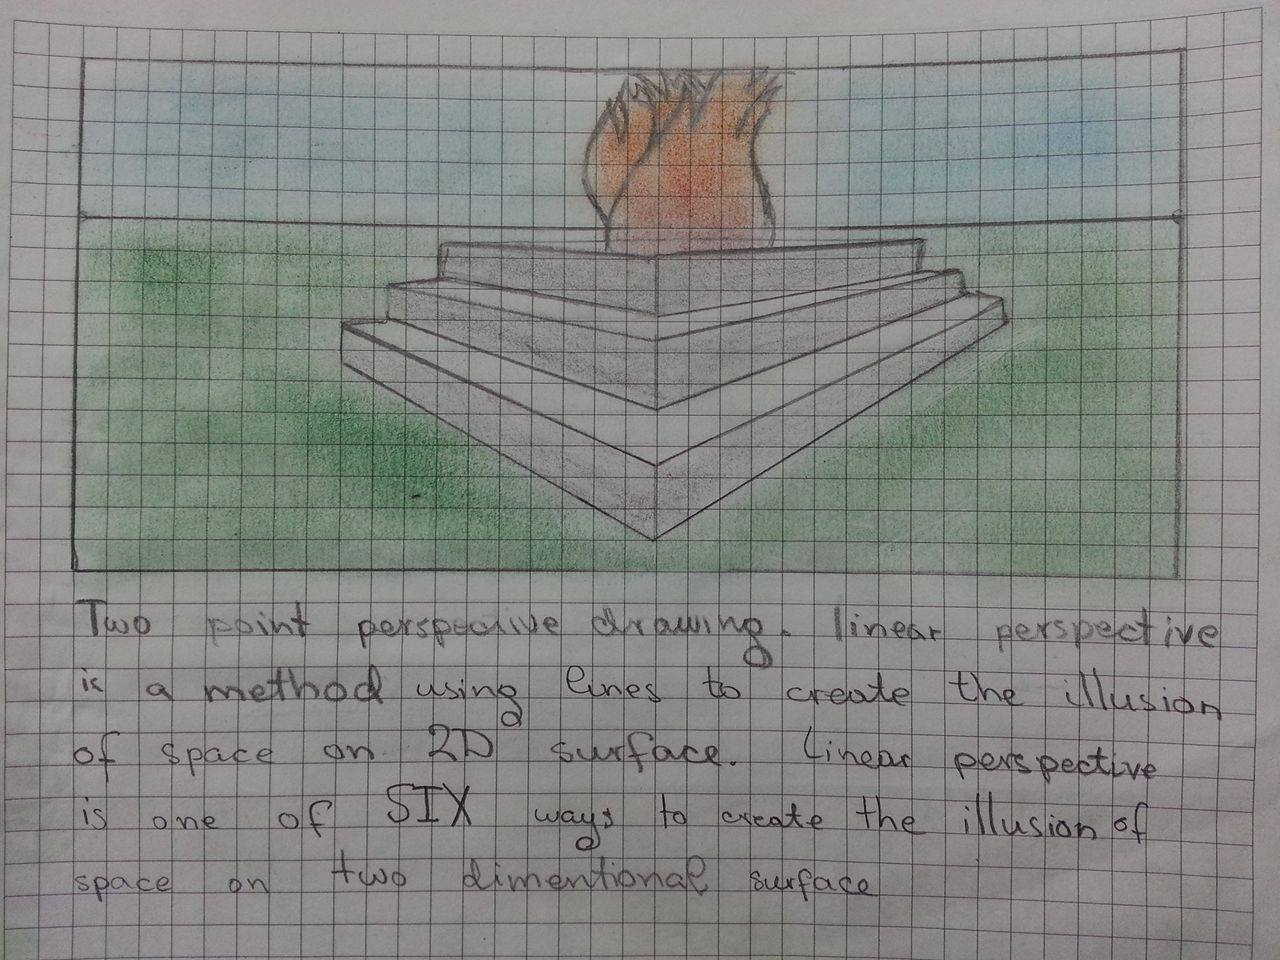 Two point perspective drawing. linear perspective
is a method using lines to create the illusion
of space on 2D surface. Linear perspective
is one of SIX ways to create the illusion of
space on two dimentional surface